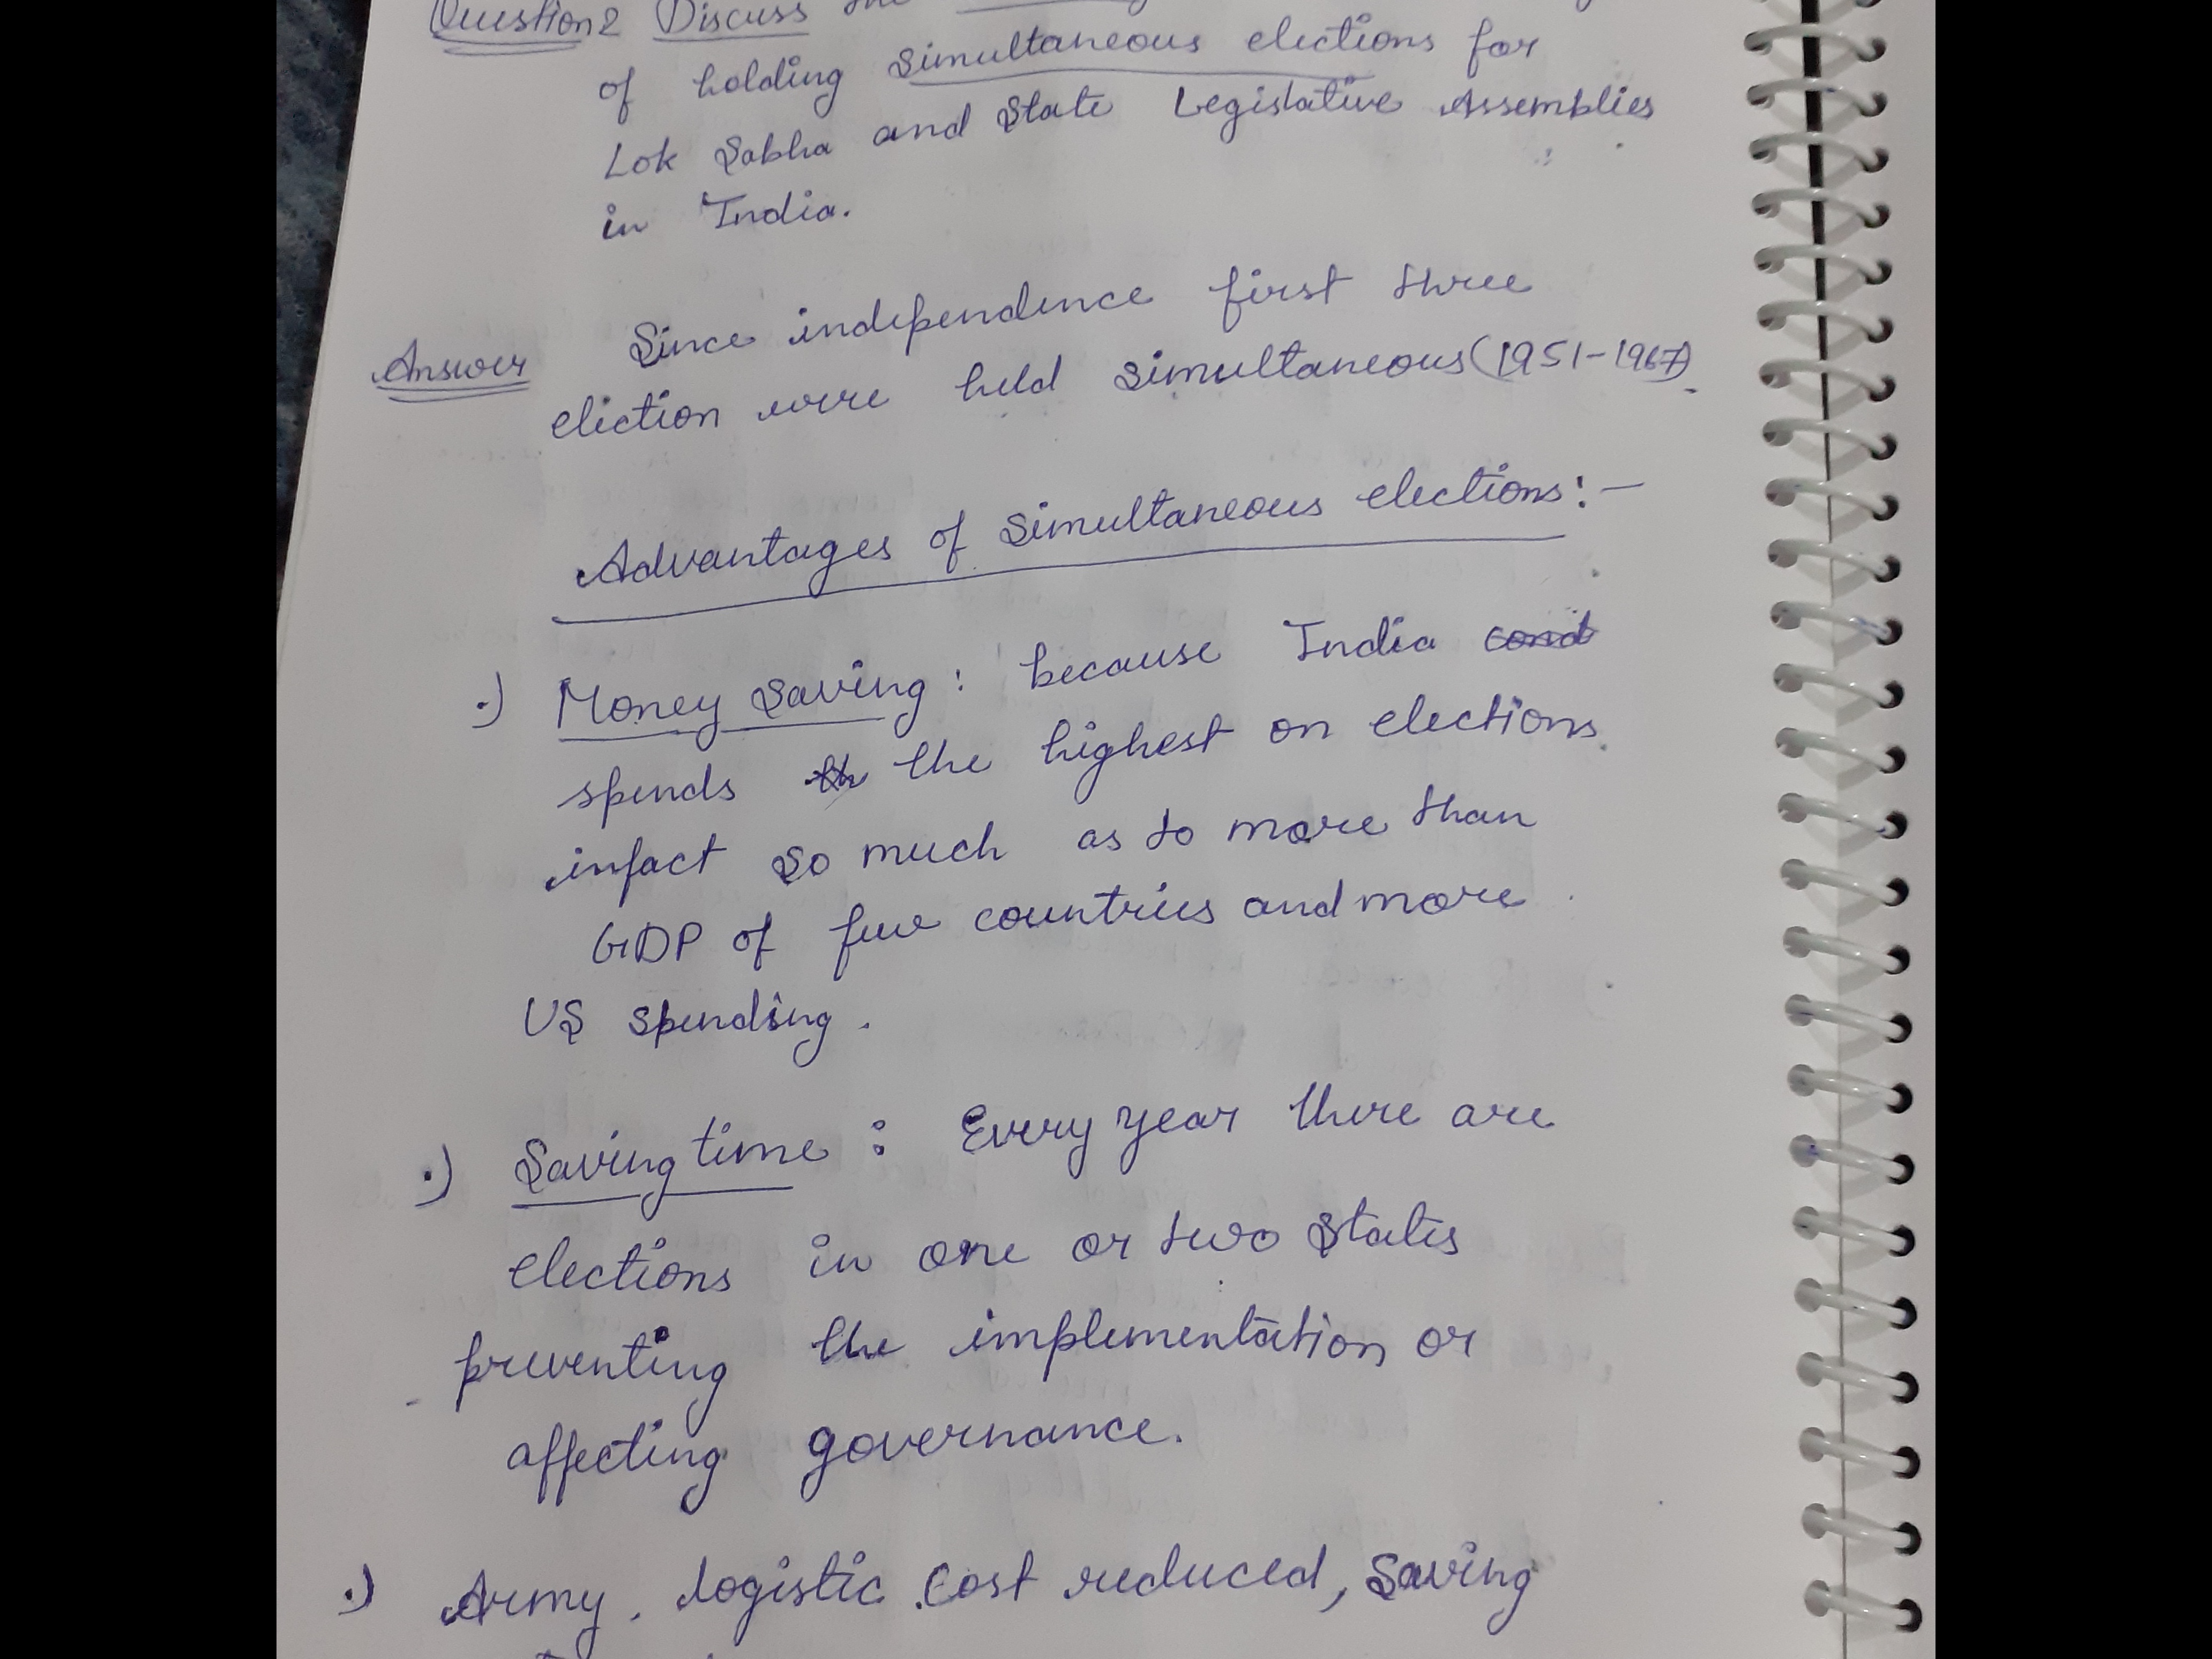 Question 2 Discuss the
of holding simultaneous elections for
Lok Sabha and State Legislative Assemblies
in India.
Answer Since independence first three
election were held simultaneous (1951-1967)
Advantages of Simultaneous elections:-
.) Money Saving: because India cond
spends th the highest on elections
infact so much as to more than
GDP of few countries and more
US spending.
.) Saving time: Every year there are
elections in one or two states
preventing the implementation or
affecting governance.
.) Army, logistic cost reduced, Saving